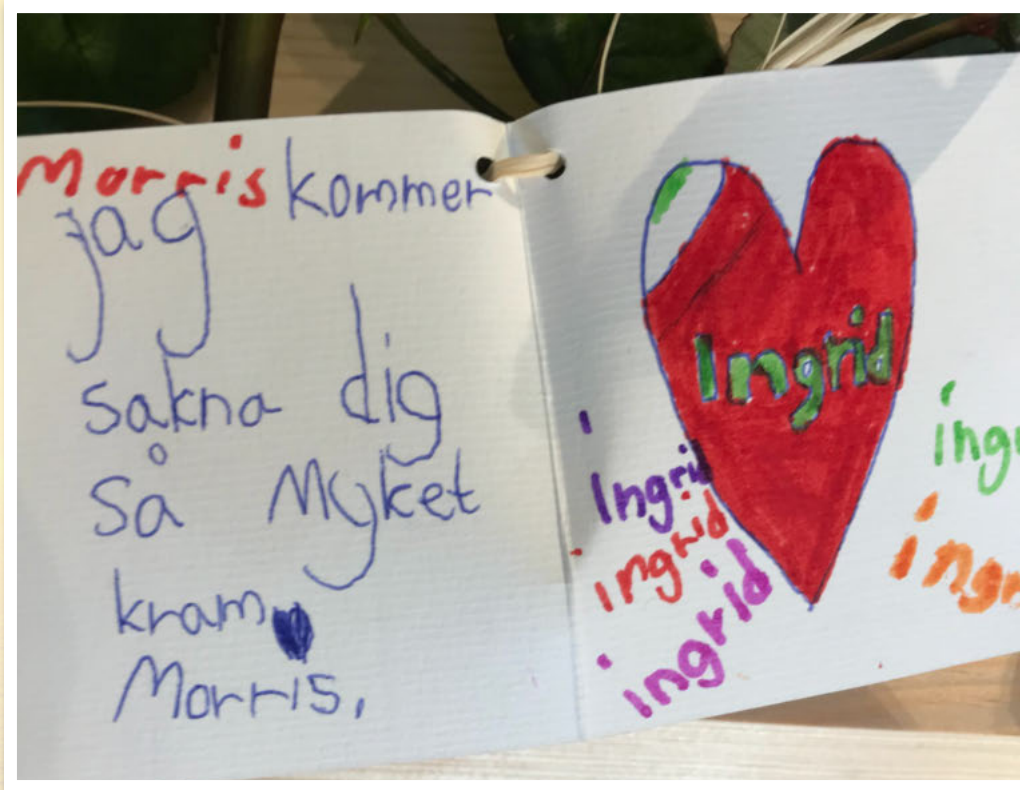 Morris
jag kommer
sakna dig
så Myket
kram
Morris.
Ingrid
Ingrid
ingrid
ingrid